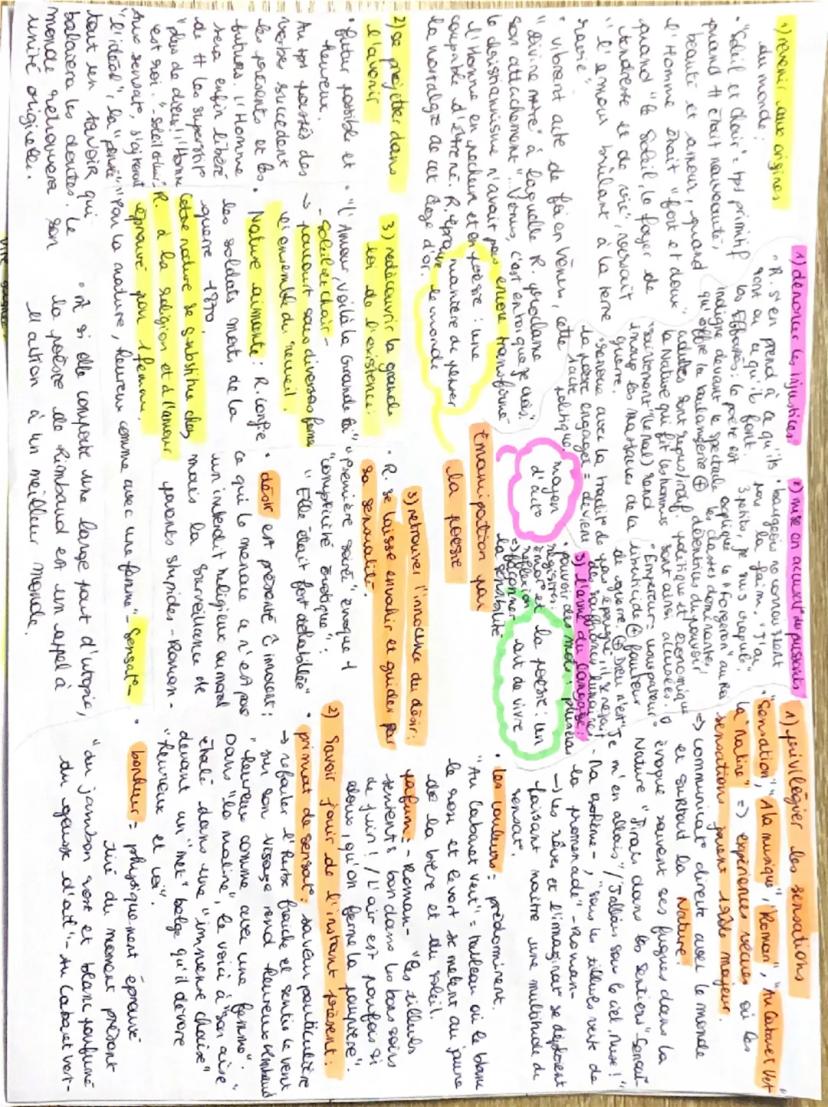 1) revenir aux origines
du monde:
• "Soleil et Chair" = tps primitif
quand tt était nouveauté,
beauté et amour, quand
l'Homme était "fort et doux"
quand "le Soleil, le foyer de
tendresse et de vie, versait
"l'amour brûlant à la terre
ravie".
• vibrant acte de foi en Vénus, cette
"divine mère" à laquelle R. proclame
son attachement: "Vénus, c'est en toi que je crois"
le christianisme n'avait pas encore transformé
l'Homme en pécheur et
coupable d'être né. R. éprouve
la nostalgie de cet âge d'or.
poésie: une
manière de penser
le monde
2) se projeter dans
l'avenir
• futur possible et
heureux.
Au tps passés des
verbes succèdent
les présents et les
futurs. l'Homme
sera enfin libéré
de tt les superstit°
"plus de dieu! l'Homme
est roi. "soleil et chair"
tout en
balaiera les doutes. le
monde retrouvera son
unité originelle.
3) redécouvrir la grande
loi de l'existence:
• "L'Amour, voilà la Grande loi"
- Soleil et chair -
→ parcourt sous diverses forms
l'ensemble du recueil.
• Nature aimante: R. confie
les soldats morts de la
guerre 1870.
Cette nature se substitue chez
R. à la religion et à l'amour
éprouvé par 1 femme.
"Par la nature, heureux comme avec une femme" - Sensat° -
• Et si elle comporte une large part d'utopie,
la poésie de Rimbaud est un appel à
l'action à un meilleur monde.
1) dénoncer les injustices
• R. s'en prend à ce qu'ils
sont ou ce qu'ils font
les Effarés: le poète est
indigné devant le spectacle
qu'offre la boulangerie ⊕
la Nature qui fit les hommes
saintement" (le mal) rend
les massacres de la
guerre.
renoue avec la tradit° de
la poésie engagée = devient
1 acte politique
moyen
d'act°
2) mise en accusat° des puissants
• bourgeois ne connaissent
pas la faim. "J'ai
3 petits, je suis crapule"
explique le "Forgeron" au Roi
les classes dominantes,
détentrices du pouvoir
politique et économique
sont ainsi accusées.
• "Empereur = usurpateur
liberticide ⊕ fauteur
de guerre. ⊕ Dieu n'est
pas épargné, il se rejouit
des souffrances humaines.
3) l'arme du langage:
pouvoir des mots: plusieurs
registres
la poésie: un
art de vivre
Emancipation par
la poésie
3) retrouver l'innocence du désir:
• R. se laisse envahir et guider par
sa sensualité
"Première soirée" évoque 1
"complicité érotique":
"Elle était fort déshabillée"
• désir est présenté c innocent:
ce qui le menace ce n'est pas
un interdit religieux ou moral
mais la surveillance de
parents stupides - Roman -
1) privilégier les sensations
"Sensation", "A la musique", "Roman", "Au Cabaret Vert"
"la Maline" => expériences vécues où les
sensations jouent 1 rôle majeur.
=> communicat° directe avec le monde
et surtout la Nature
évoque souvent ses fugues dans la
Nature "J'irai dans les sentiers" Sensat°
"Je m'en allais" / J'allais sous le ciel, Muse!"
- Ma Bohème -, "sous les tilleuls verts de
la promenade" - Roman -
→ les rêve et l'imaginat° se déploient
faisant naître une multitude de
sensat°.
• les couleurs: prédominent.
"Au Cabaret Vert" = tableau où le blanc
le rose et le vert se mêlent au jaune
de la bière et du soleil.
• parfums: - Roman - "les tilleuls
sentent bon dans les bons soirs
de juin! / L'air est parfois si
doux, qu'on ferme la paupière".
2) Savoir jouir de l'instant présent:
• primat de sensat°: saveur particulière
→ refouler l'herbe fraîche et sentir le vent
sur son visage rend heureux Rimbaud
"heureux comme avec une femme".
Dans "la maline", le voici à "son aise
étalé dans une "immense chaise"
devant un "met" belge qu'il dévore
"heureux et coi".
• bonheur = physiquement éprouvé
tiré du moment présent
"du jambon rose et blanc parfumé
du gousse d'ail" - Au Cabaret vert -